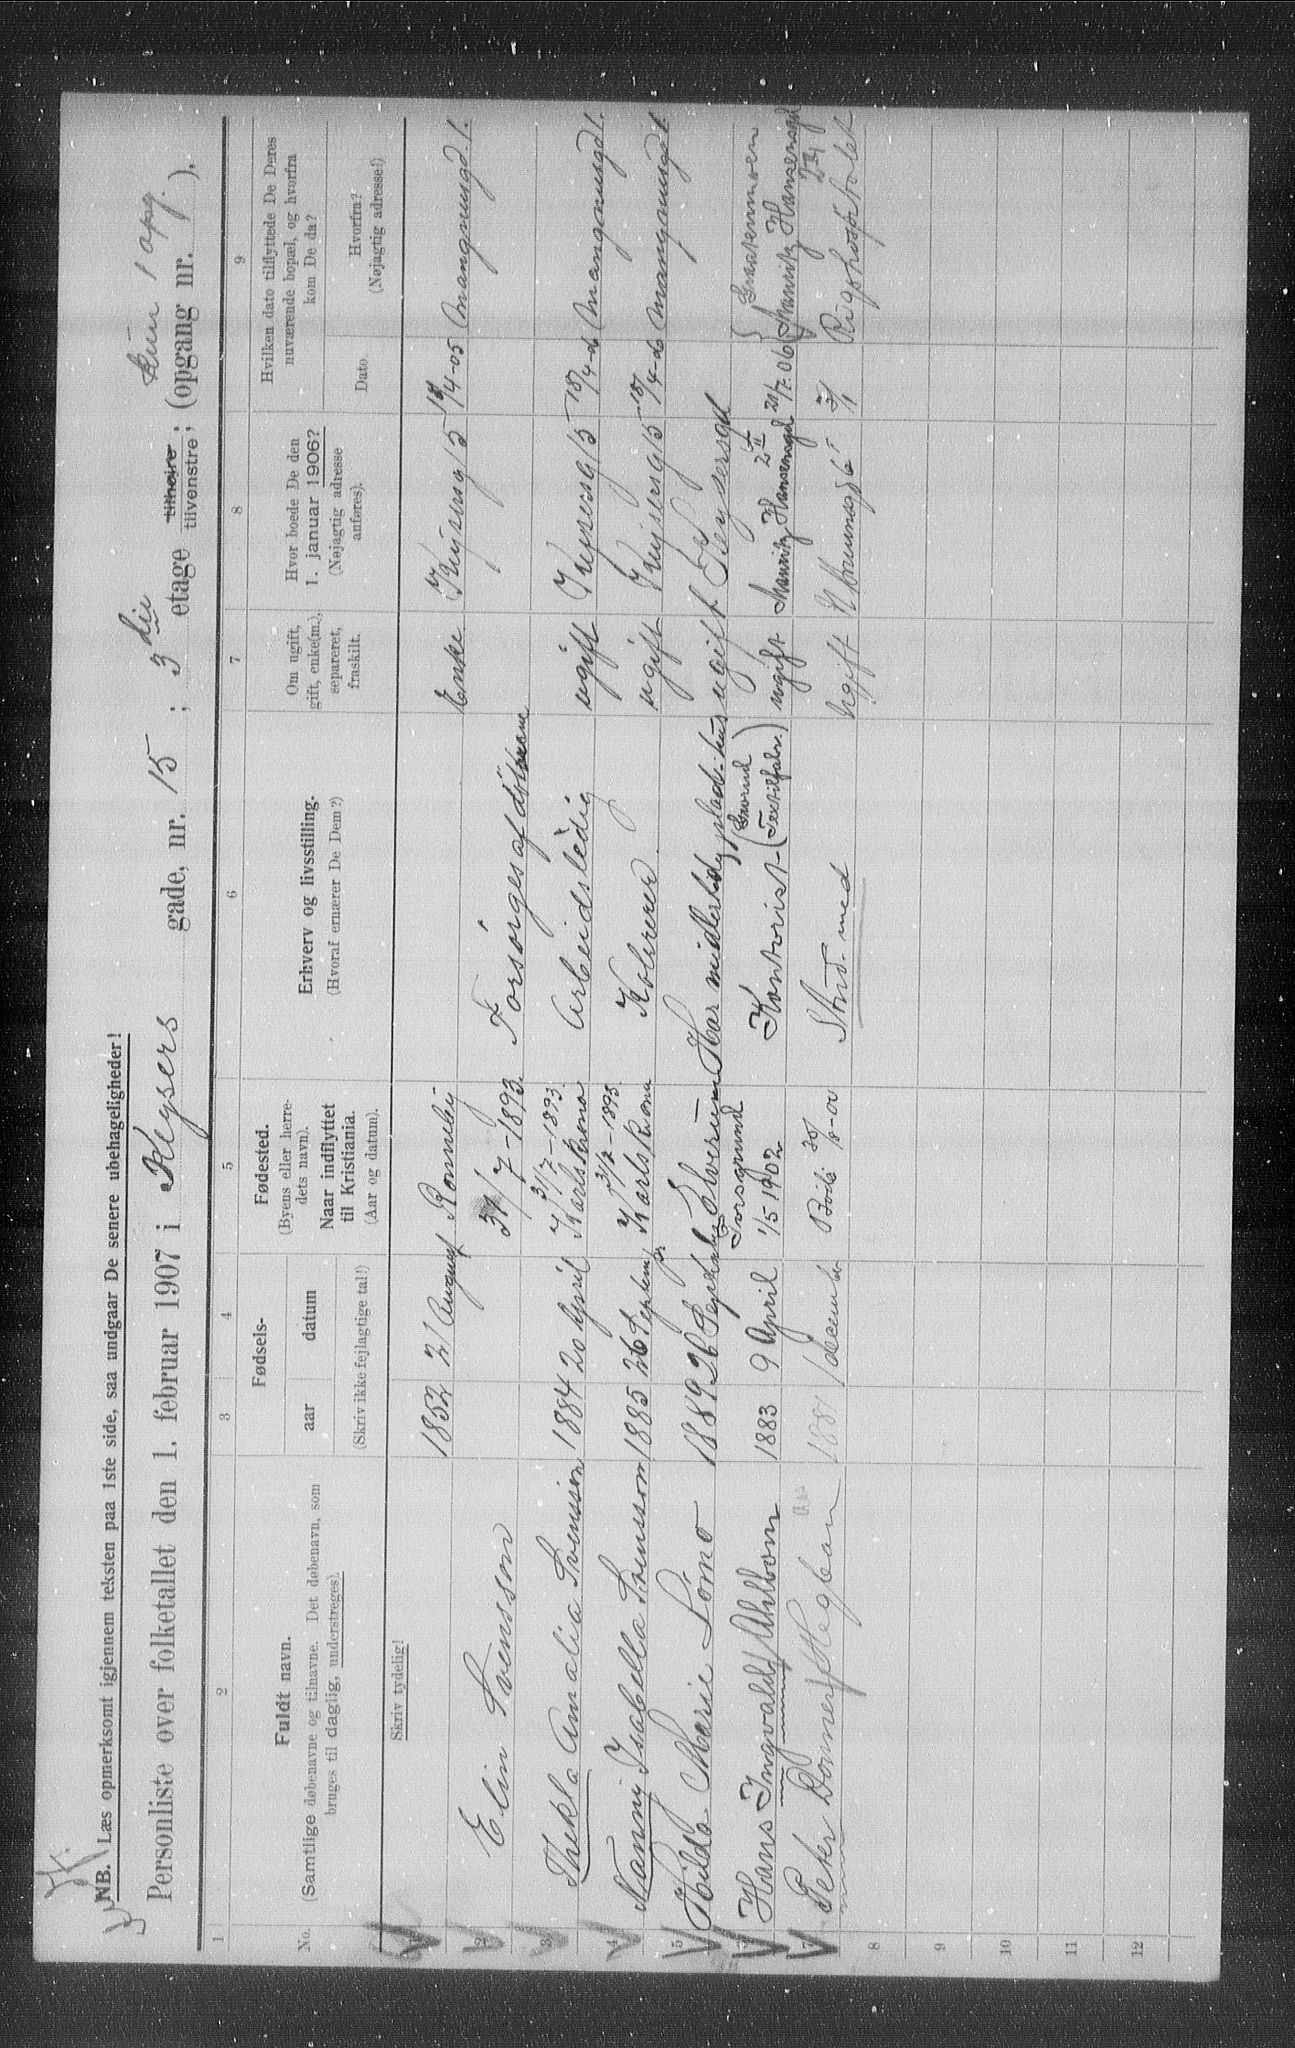 NB. Læs opmerksomt igjennem teksten paa 1ste side, saa undgaar De senere ubehageligheder!
kun 1 opg.
Personliste over folketallet den 1. februar 1907 i Keysers gade, nr. 15 ; 3die etage tilhøjre ; tilvenstre ; (opgang nr. ).
1 2 3 4 5 6 7 8 9
No.
Fuldt navn.
(Samtlige døbenavne og tilnavne. Det døbenavn, som
bruges til daglig, understreges).
Fødsels-
aar datum
(Skriv ikke fejlagtige tal!)
Fødested.
(Byens eller herre-
dets navn).
Naar indflyttet
til Kristiania.
(Aar og datum).
Erhverv og livsstilling.
(Hvoraf ernærer De Dem?)
Om ugift,
gift, enke(m.),
separeret,
fraskilt.
Hvor boede De den
1. januar 1906?
(Nøjagtig adresse
anføres).
Hvilken dato tilflyttede De Deres
nuværende bopæl, og hvorfra
kom De da?
Dato
Hvorfra?
(Nøjagtig adresse!)
Skriv tydelig!
1852 21 August Ronneby Enke Keysersg 15 18/4-05 Mangnusgd. 1.
2 Elin Svensson 31/7-1893. Forsörges af döttrene
3 Thekla Amalia Svensson 1884 20 April Karlskrona 31/7-1893. Arbeidsledig ugift Keysersg 15 18/4-06 Mangnusgd 1.
4 Nanny Isabella Svensson 1885 26 September Karlskrona 31/7-1893. Kolorerer ugift Keysersg 15 18/4-06 Mangnusgd 1.
5 Hilda Marie Lömo 1889 26 September Elverum Har midlertidig plads i hus ugift Keysersgd
6 Hans Ingvald Ahlbom 1883 9 April Porsgrund 1/5 1902 Kontorist (Grorud Textilfabr.) ugift Mauritz Hansensgd 2 II 20/7-06 Mauritz Hansensgd 2 III
7 Peter Donner Hegban 1881 1 december Bodö 30/8-00 Stud. med Ugift 3/1 Rigshospitalet
8
9
10
11
12